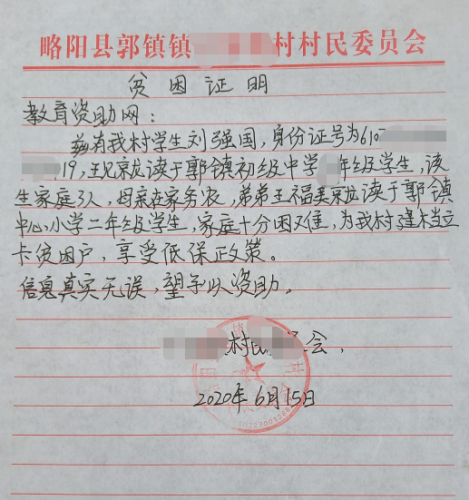 略阳县郭镇镇 村村民委员会
贫困证明
教育资助网:
兹有我村学生刘强国,身份证号为610
17,现就读于郭镇初级中学 年级学生,该
生家庭3人,母亲在家务农,弟弟王福美就读于郭镇
中心小学二年级学生,家庭十分困难,为我村建档立
卡贫困户,享受低保政策。
信息真实无误,望予以资助。
村民 会.
2020年6月15日